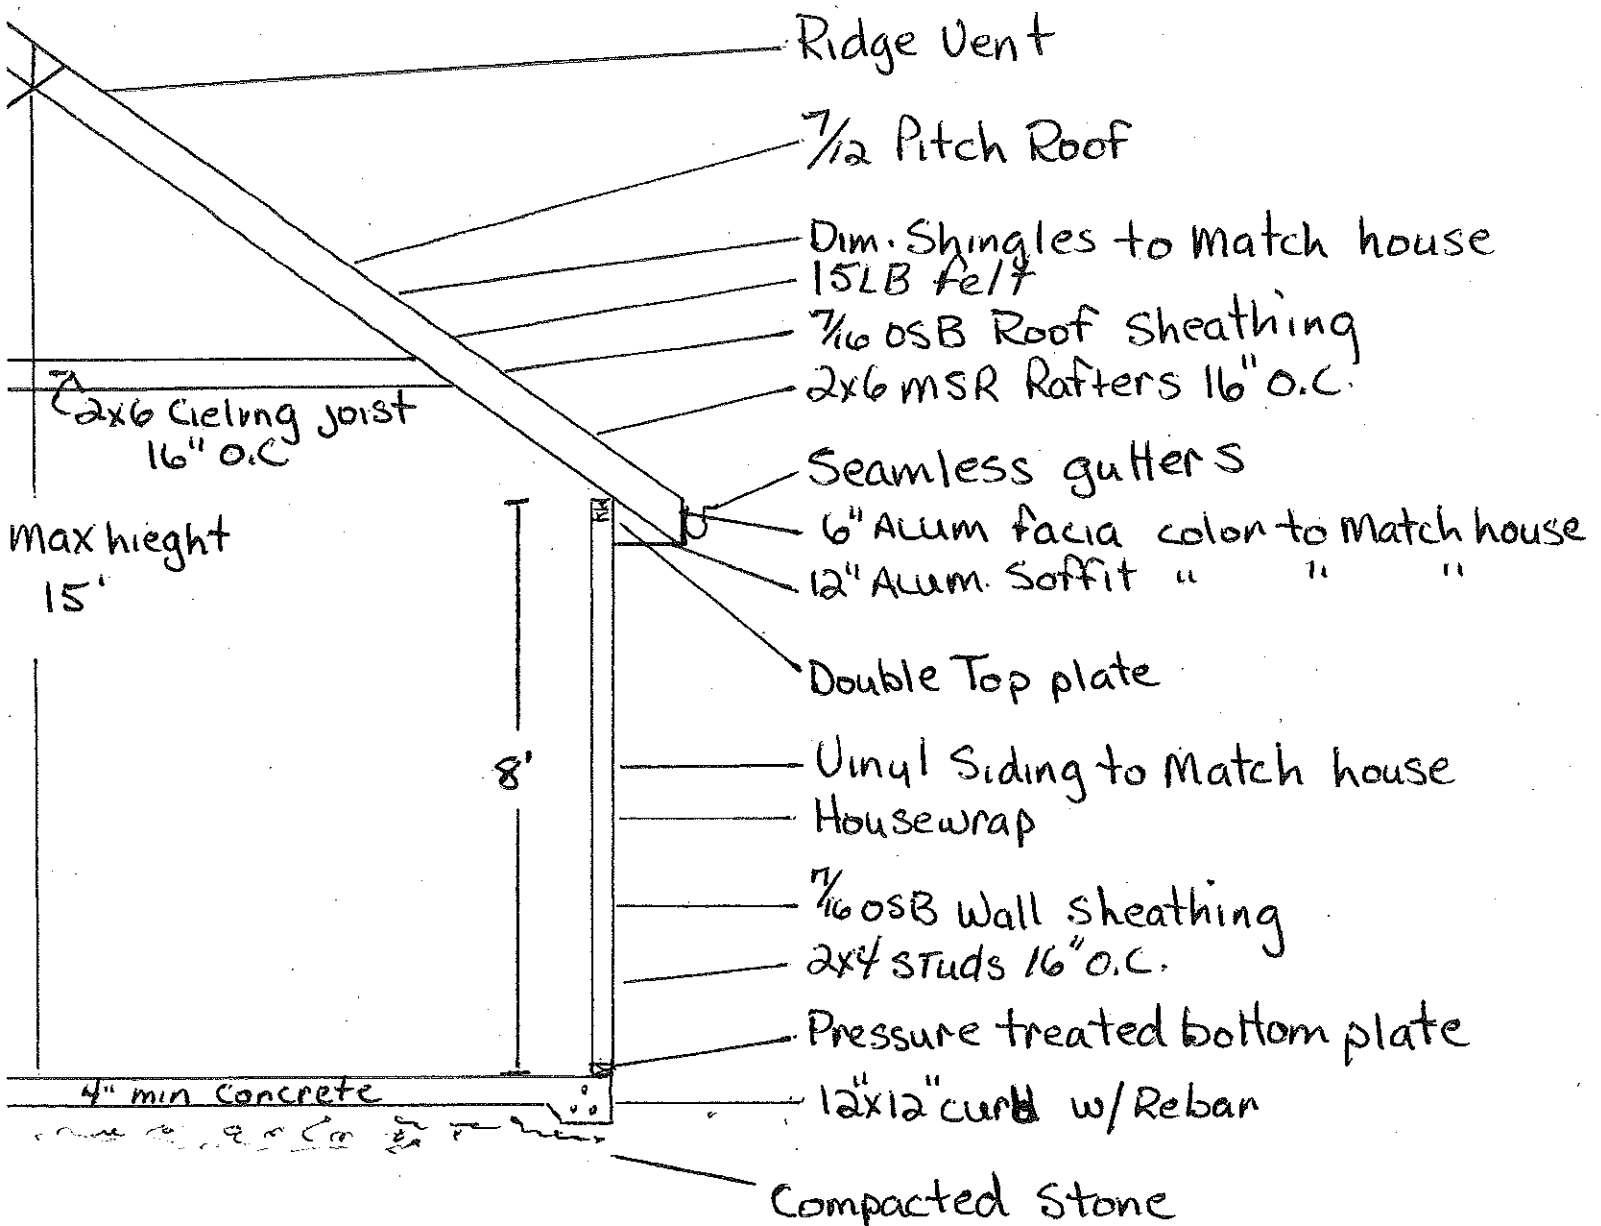 Ridge Vent
7/12 Pitch Roof
Dim. Shingles to match house
15LB felt
7/16 OSB Roof Sheathing
2x6 MSR Rafters 16" O.C.
2x6 Cieling joist
16" O.C
Seamless gutters
6" Alum facia color to Match house
12" Alum. Soffit " " "
max hieght
15'
Double Top plate
8'
Vinyl Siding to Match house
Housewrap
7/16 OSB Wall Sheathing
2x4 STuds 16" O.C.
Pressure treated bottom plate
4" min Concrete
12"x12" curb w/Rebar
Compacted Stone